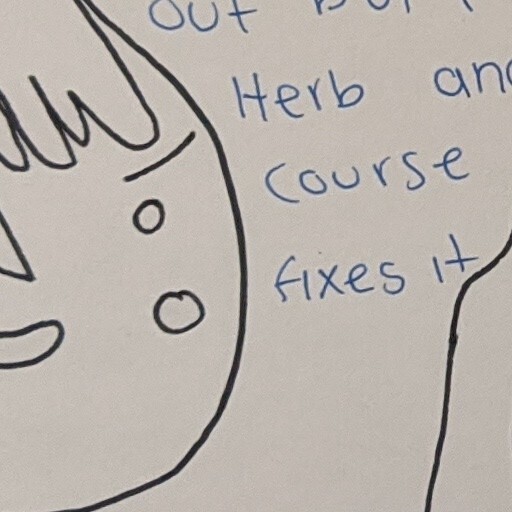 out
Herb and
course
fixes it